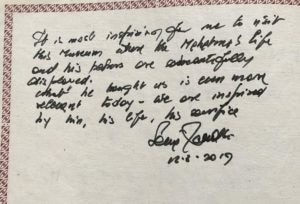 It is most inspiring for me to visit
this Museum where the Mahatma's life
and his papers are so meaningfully
displayed.
What he taught us is even more
relevant today - we are inspired
by him, his life, his sacrifice
12-2-2019